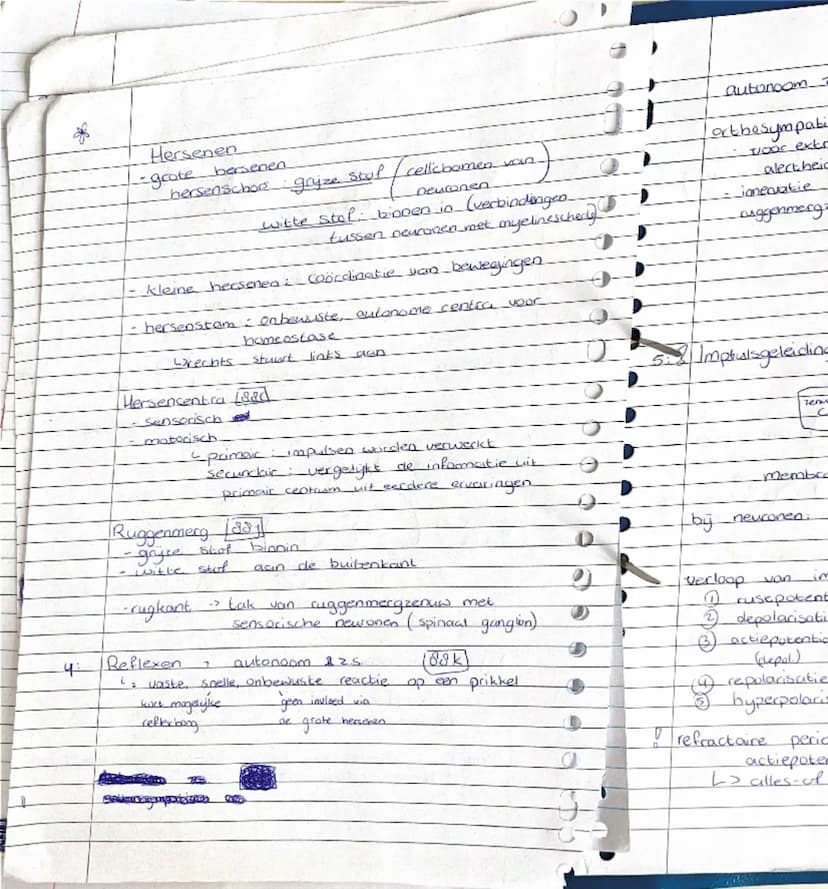 Hersenen
- grote hersenen
hersenschors: grijze stof (cellichamen van
neuronen)
witte stof: binnen in (verbindingen
tussen neuronen met myelineschede)
- kleine hersenen: coördinatie van bewegingen
- hersenstam: onbewuste, autonome centra voor
homeostase
↳ rechts stuurt links aan
Hersencentra
- sensorisch
- motorisch
↳ primair: impulsen worden verwerkt
secundair: vergelijkt de informatie uit
primair centrum uit eerdere ervaringen
Ruggenmerg 88J
- grijze stof binnin
- witte stof aan de buitenkant
- rugkant -> tak van ruggenmergzenuw met
sensorische neuronen (spinaal ganglion)
4: Reflexen, autonoom zzs 88k
↳ vaste, snelle, onbewuste reactie op een prikkel
kort mogelijke geen invloed via
reflexboog de grote hersenen
autonoom
orthosympati
voor extr
alertheid
- innervatie
ruggenmergz
5.2 Impulsgeleiding
membra
bij neuronen:
verloop van im
① rustpotent
② depolarisati
③ actiepotentia
(depol.)
④ repolarisatie
⑤ hyperpolaris
! refractaire perio
actiepoten
↳ alles-of